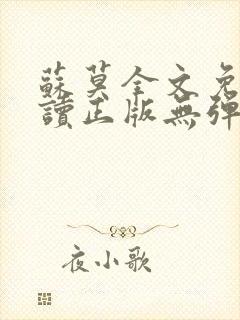 蘇莫全文免
讀正版無彈
夜小歌